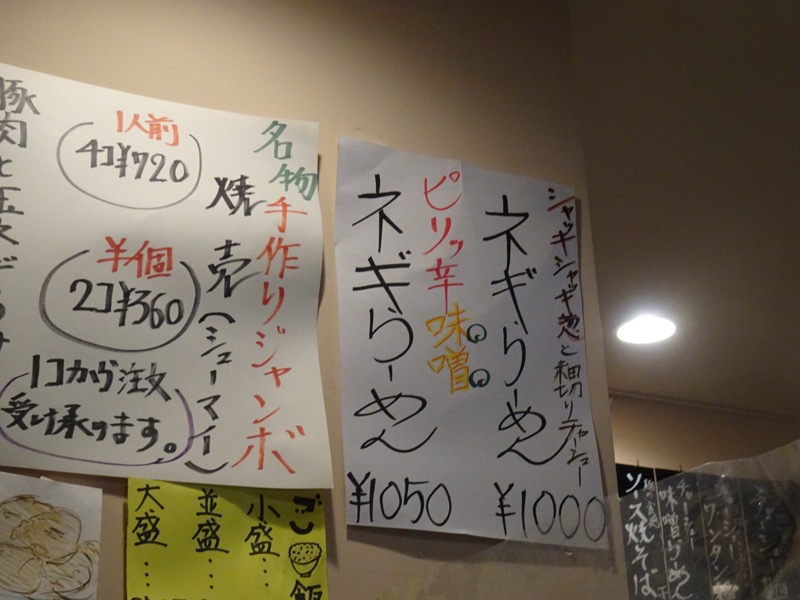 シャッキシャッキ葱と細切りチャーシュー
ネギらーめん
¥1000
ピリッ辛味噌
ネギらーめん
¥1050
名物手作りジャンボ
焼売(シューマイ)
1人前
4コ¥720
半個
2コ¥360
1コから注文
受け承ります。
豚肉と玉
ご飯
小盛…
並盛…
大盛…
ワンタン
チャーシュー
味噌らーめん
ソース焼そば